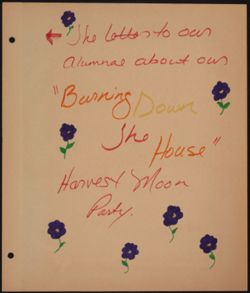 ← The letter to our
alumnae about our
"Burning Down
The
House"
Harvest Moon
Party.